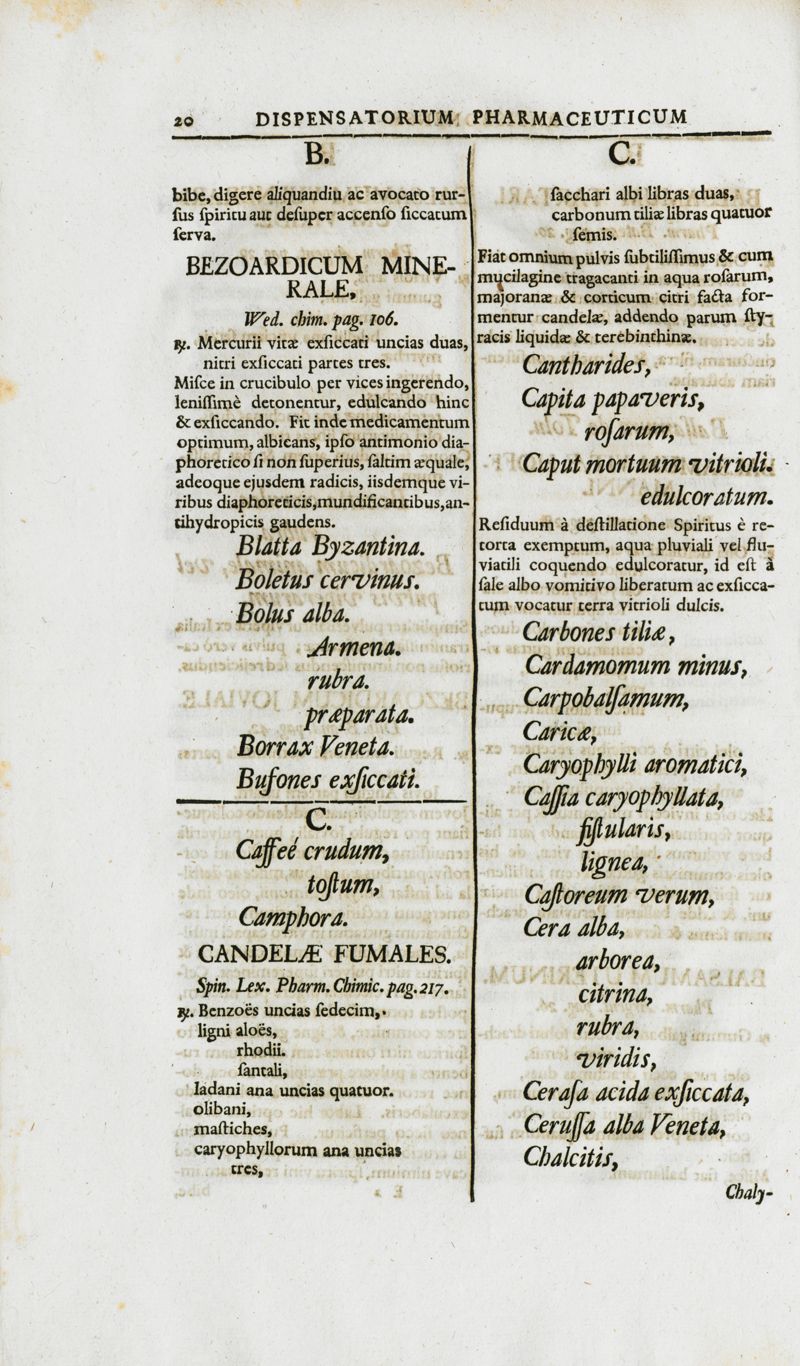 20 DISPENSATORIUM PHARMACEUTICUM
B.
bibe, digere aliquandiu ac avocato rur-
ſus ſpiritu aut deſuper accenſo ſiccatum
ſerva.
BEZOARDICUM MINE-
RALE,
Wed. chim. pag. 106.
℞. Mercurii vitæ exſiccati uncias duas,
nitri exſiccati partes tres.
Miſce in crucibulo per vices ingerendo,
leniſſimè detonentur, edulcando hinc
& exſiccando. Fit inde medicamentum
optimum, albicans, ipſo antimonio dia-
phoretico ſi non ſuperius, ſaltim æquale,
adeoque ejusdem radicis, iisdemque vi-
ribus diaphoreticis, mundificantibus, an-
tihydropicis gaudens.
Blatta Byzantina.
Boletus cervinus.
Bolus alba.
Armena.
rubra.
præparata.
Borrax Veneta.
Bufones exſiccati.
C.
Caffeé crudum,
toſtum,
Camphora.
CANDELÆ FUMALES.
Spin. Lex. Pharm. Chimic. pag. 217.
℞. Benzoës uncias ſedecim,
ligni aloës,
rhodii.
ſantali,
ladani ana uncias quatuor.
olibani,
maſtiches,
caryophyllorum ana uncias
tres,
C.
ſacchari albi libras duas,
carbonum tiliæ libras quatuor
ſemis.
Fiat omnium pulvis ſubtiliſſimus & cum
mucilagine tragacanti in aqua roſarum,
majoranæ & corticum citri facta for-
mentur candelæ, addendo parum ſty-
racis liquidæ & terebinthinæ.
Cantharides,
Capita papaveris,
roſarum,
Caput mortuum vitrioli.
edulcoratum.
Reſiduum à deſtillatione Spiritus è re-
torta exemptum, aqua pluviali vel flu-
viatili coquendo edulcoratur, id eſt à
ſale albo vomitivo liberatum ac exſicca-
tum vocatur terra vitrioli dulcis.
Carbones tiliæ,
Cardamomum minus,
Carpobalſamum,
Caricæ,
Caryophylli aromatici,
Caſſia caryophyllata,
fiſtularis,
lignea,
Caſtoreum verum,
Cera alba,
arborea,
citrina,
rubra,
viridis,
Ceraſa acida exſiccata,
Ceruſſa alba Veneta,
Chalcitis,
Chaly-